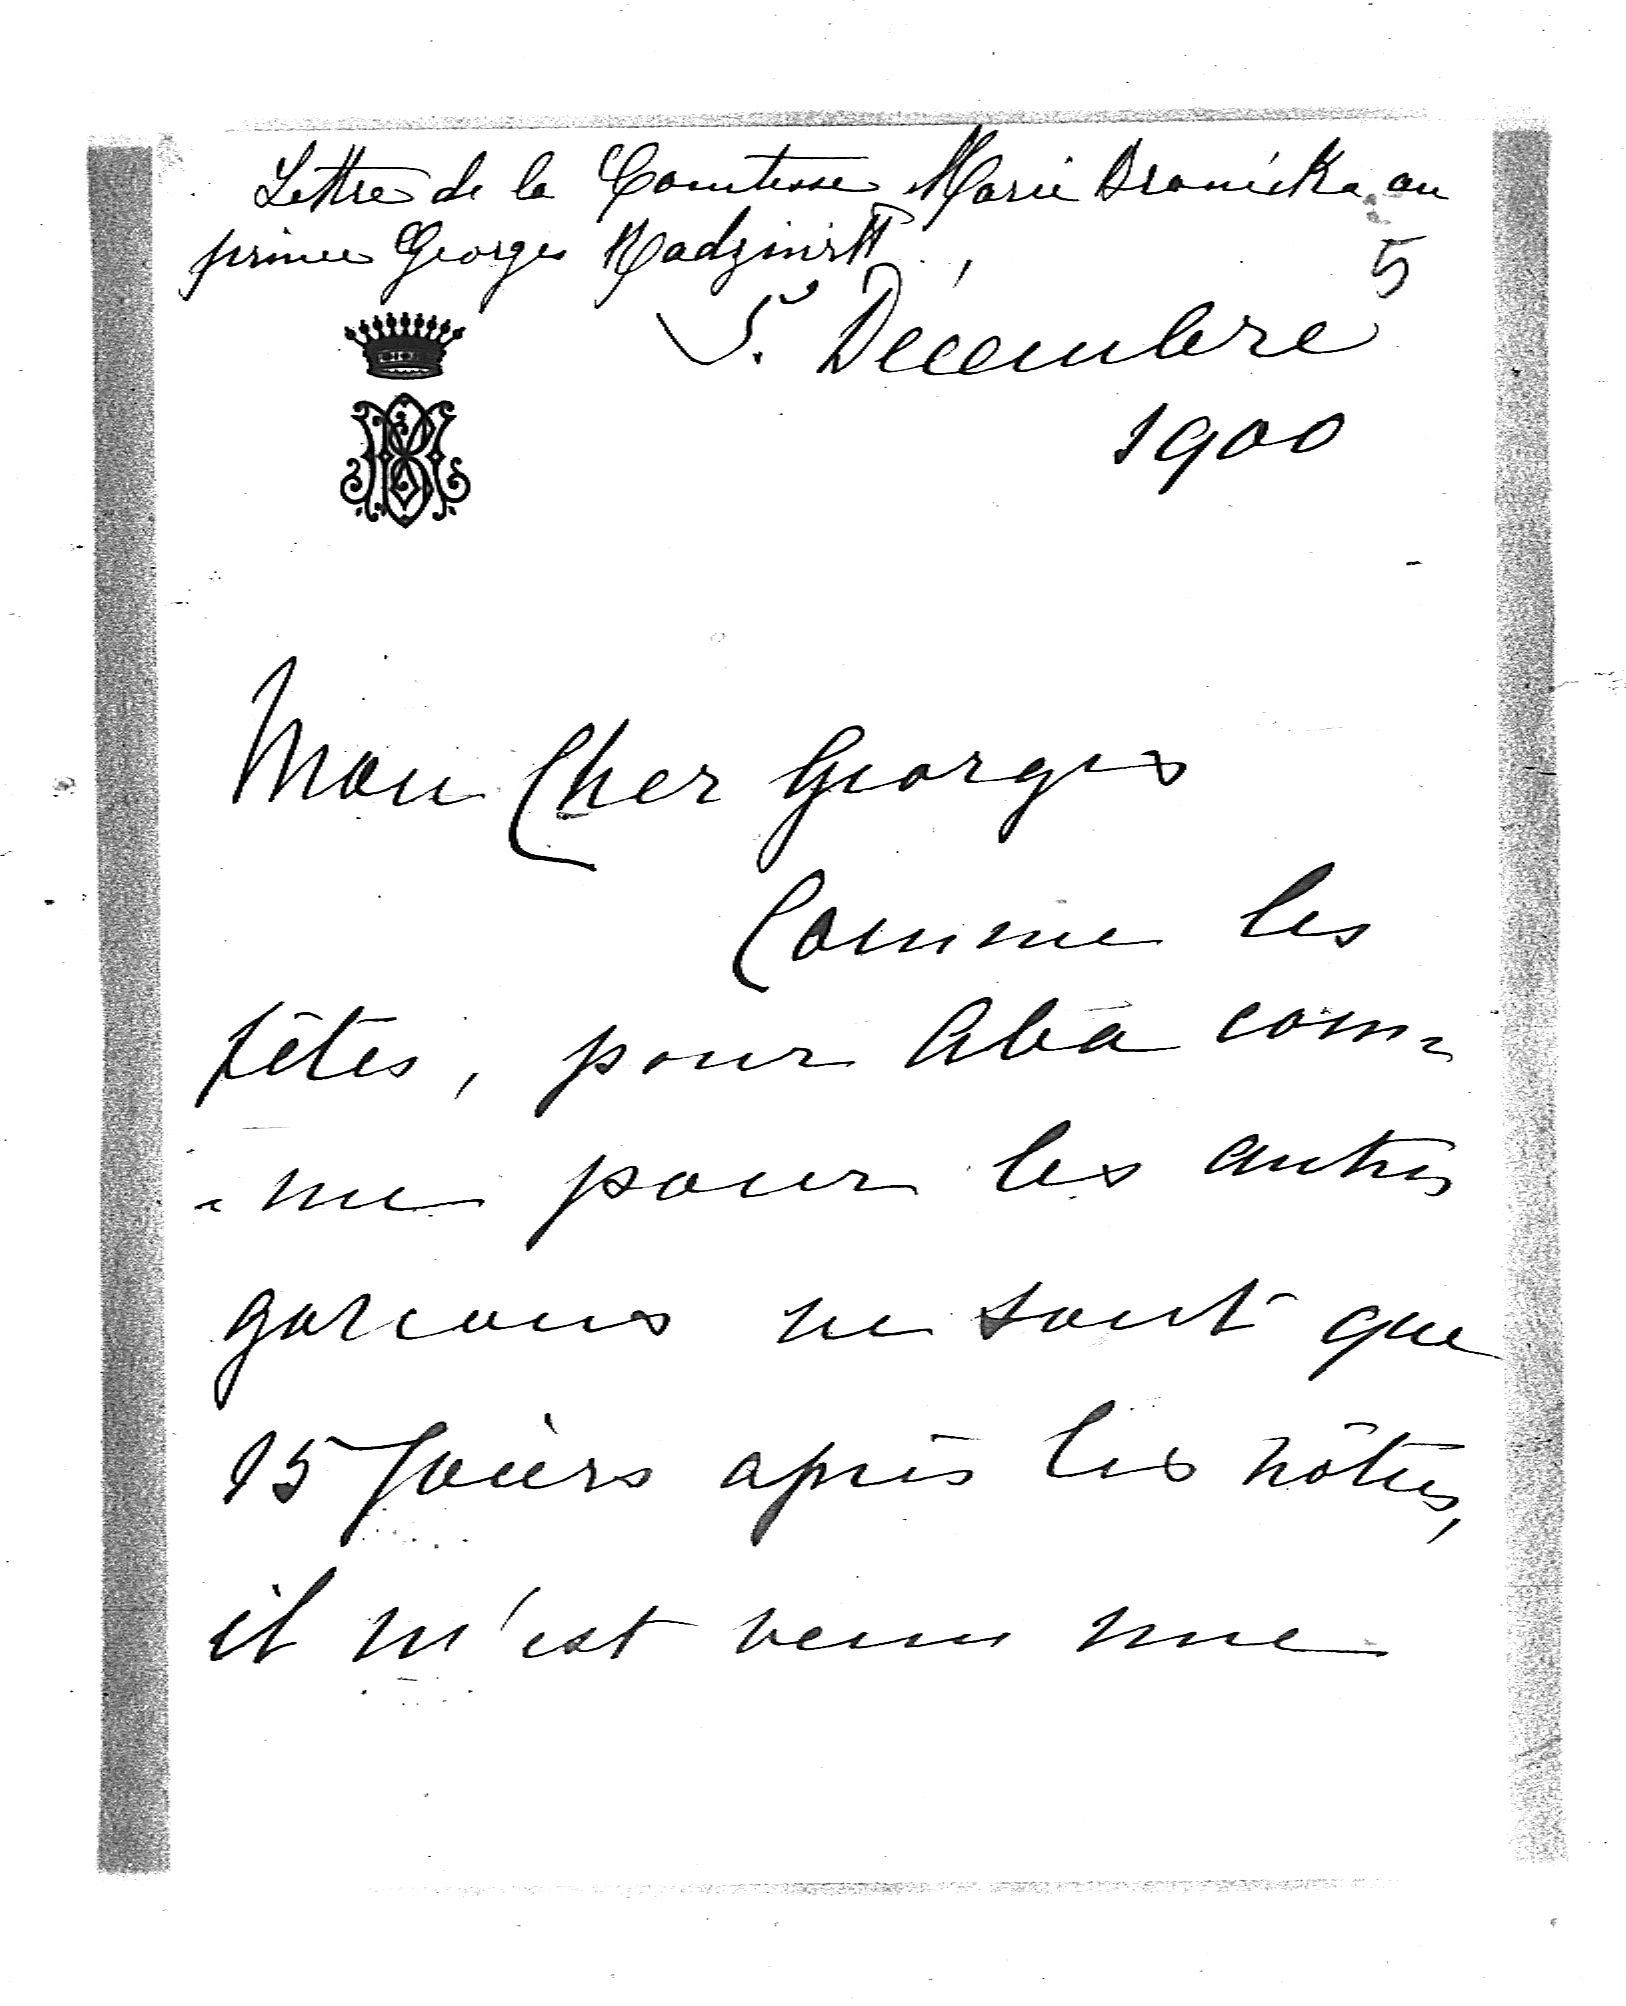 Lettre de la Comtesse Marie Branicka au
prince Georges Radziwiłł
5
5. Décembre
1900
Mon Cher Georges
Comme les
fêtes, pour Aba com-
-me pour les autres
garcons ne sont que
15 jours après les nôtres,
il m'est venu une